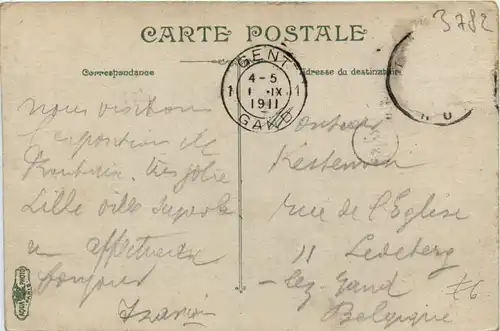 CARTE POSTALE
3782
Correspondance
Adresse du destinataire
GENT
4-5
1 1 IX 1
1911
GAND
nous visitons
l'exposition de
Roubaix. très jolie
Lille ville superbe
un affectueux
bonjour
Kestemon
rue de l'Eglise
11 Ledeberg
-lez-Gand
Belgique
£6